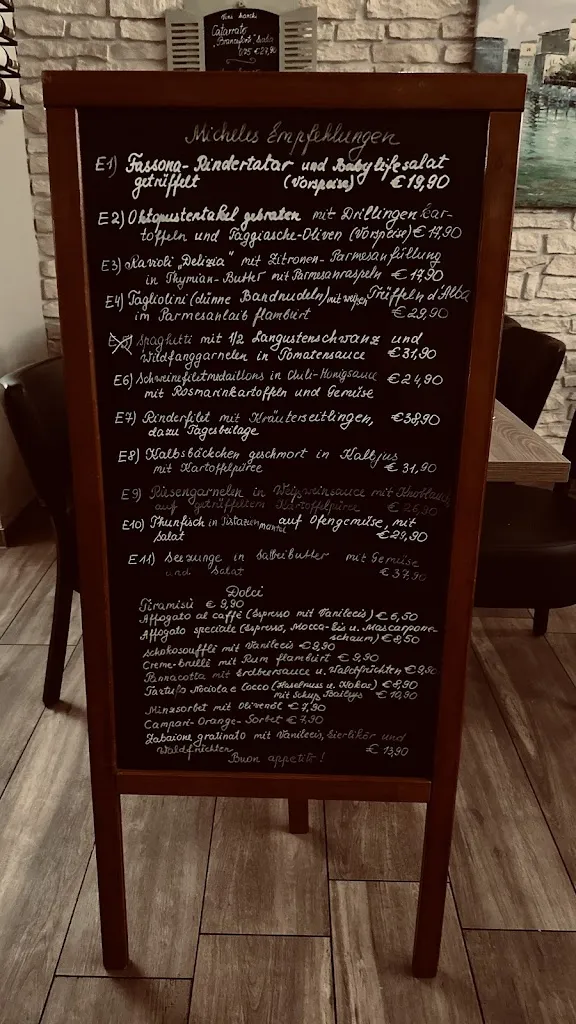 Vini bianchi
Catarrato
0,75 € 29,90
Micheles Empfehlungen
E1) Fassona-Rindertatar und Babylifesalat
getrüffelt (Vorspeise) € 19,90
E2) Oktopustentakel gebraten mit Drillingen Kar-
toffeln und Taggiasche-Oliven (Vorspeise) € 17,90
E3) Ravioli „Delizia" mit Zitronen-Parmesanfüllung
in Thymian-Butter mit Parmesanraspeln € 17,90
E4) Tagliolini (dünne Bandnudeln) mit weißen Trüffeln d'Alba
im Parmesanlaib flambiert € 29,90
Spaghetti mit 1/2 Langustenschwanz und
Wildfanggarnelen in Tomatensauce € 31,90
E6) Schweinefiletmedaillons in Chili-Honigsauce € 24,90
mit Rosmarinkartoffeln und Gemüse
E7) Rinderfilet mit Kräuterseitlingen, € 38,90
dazu Tagesbeilage
E8) Kalbsbäckchen geschmort in Kalbjus
mit Kartoffelpüree € 31,90
E9) Riesengarnelen in Weißweinsauce mit Knoblauch
auf getrüffeltem Kartoffelpüree € 26,90
E10) Thunfisch in Pistazienmantel auf Ofengemüse, mit
Salat € 29,90
E11) Seezunge in Salbeibutter mit Gemüse
und Salat € 37,90
Dolci
Tiramisù € 9,90
Affogato al caffè (Espresso mit Vanilleeis) € 6,50
Affogato speciale (Espresso, Mocca-Eis u. Mascarpone-
schaum) € 8,50
Schokosouffle mit Vanilleeis € 9,90
Creme-brulle mit Rum flambiert € 9,90
Pannacotta mit Erdbeersauce u. Waldfrüchten € 9,90
Tartufo Nociola e Cocco (Haselnuss u. Kokos) € 8,90
mit Schuß Baileys € 10,90
Minzsorbet mit Olivenöl € 7,90
Campari-Orange-Sorbet € 7,90
Zabaione gratinato mit Vanilleeis, Eierlikör und
Waldfrüchten € 13,90
Buon appetito!